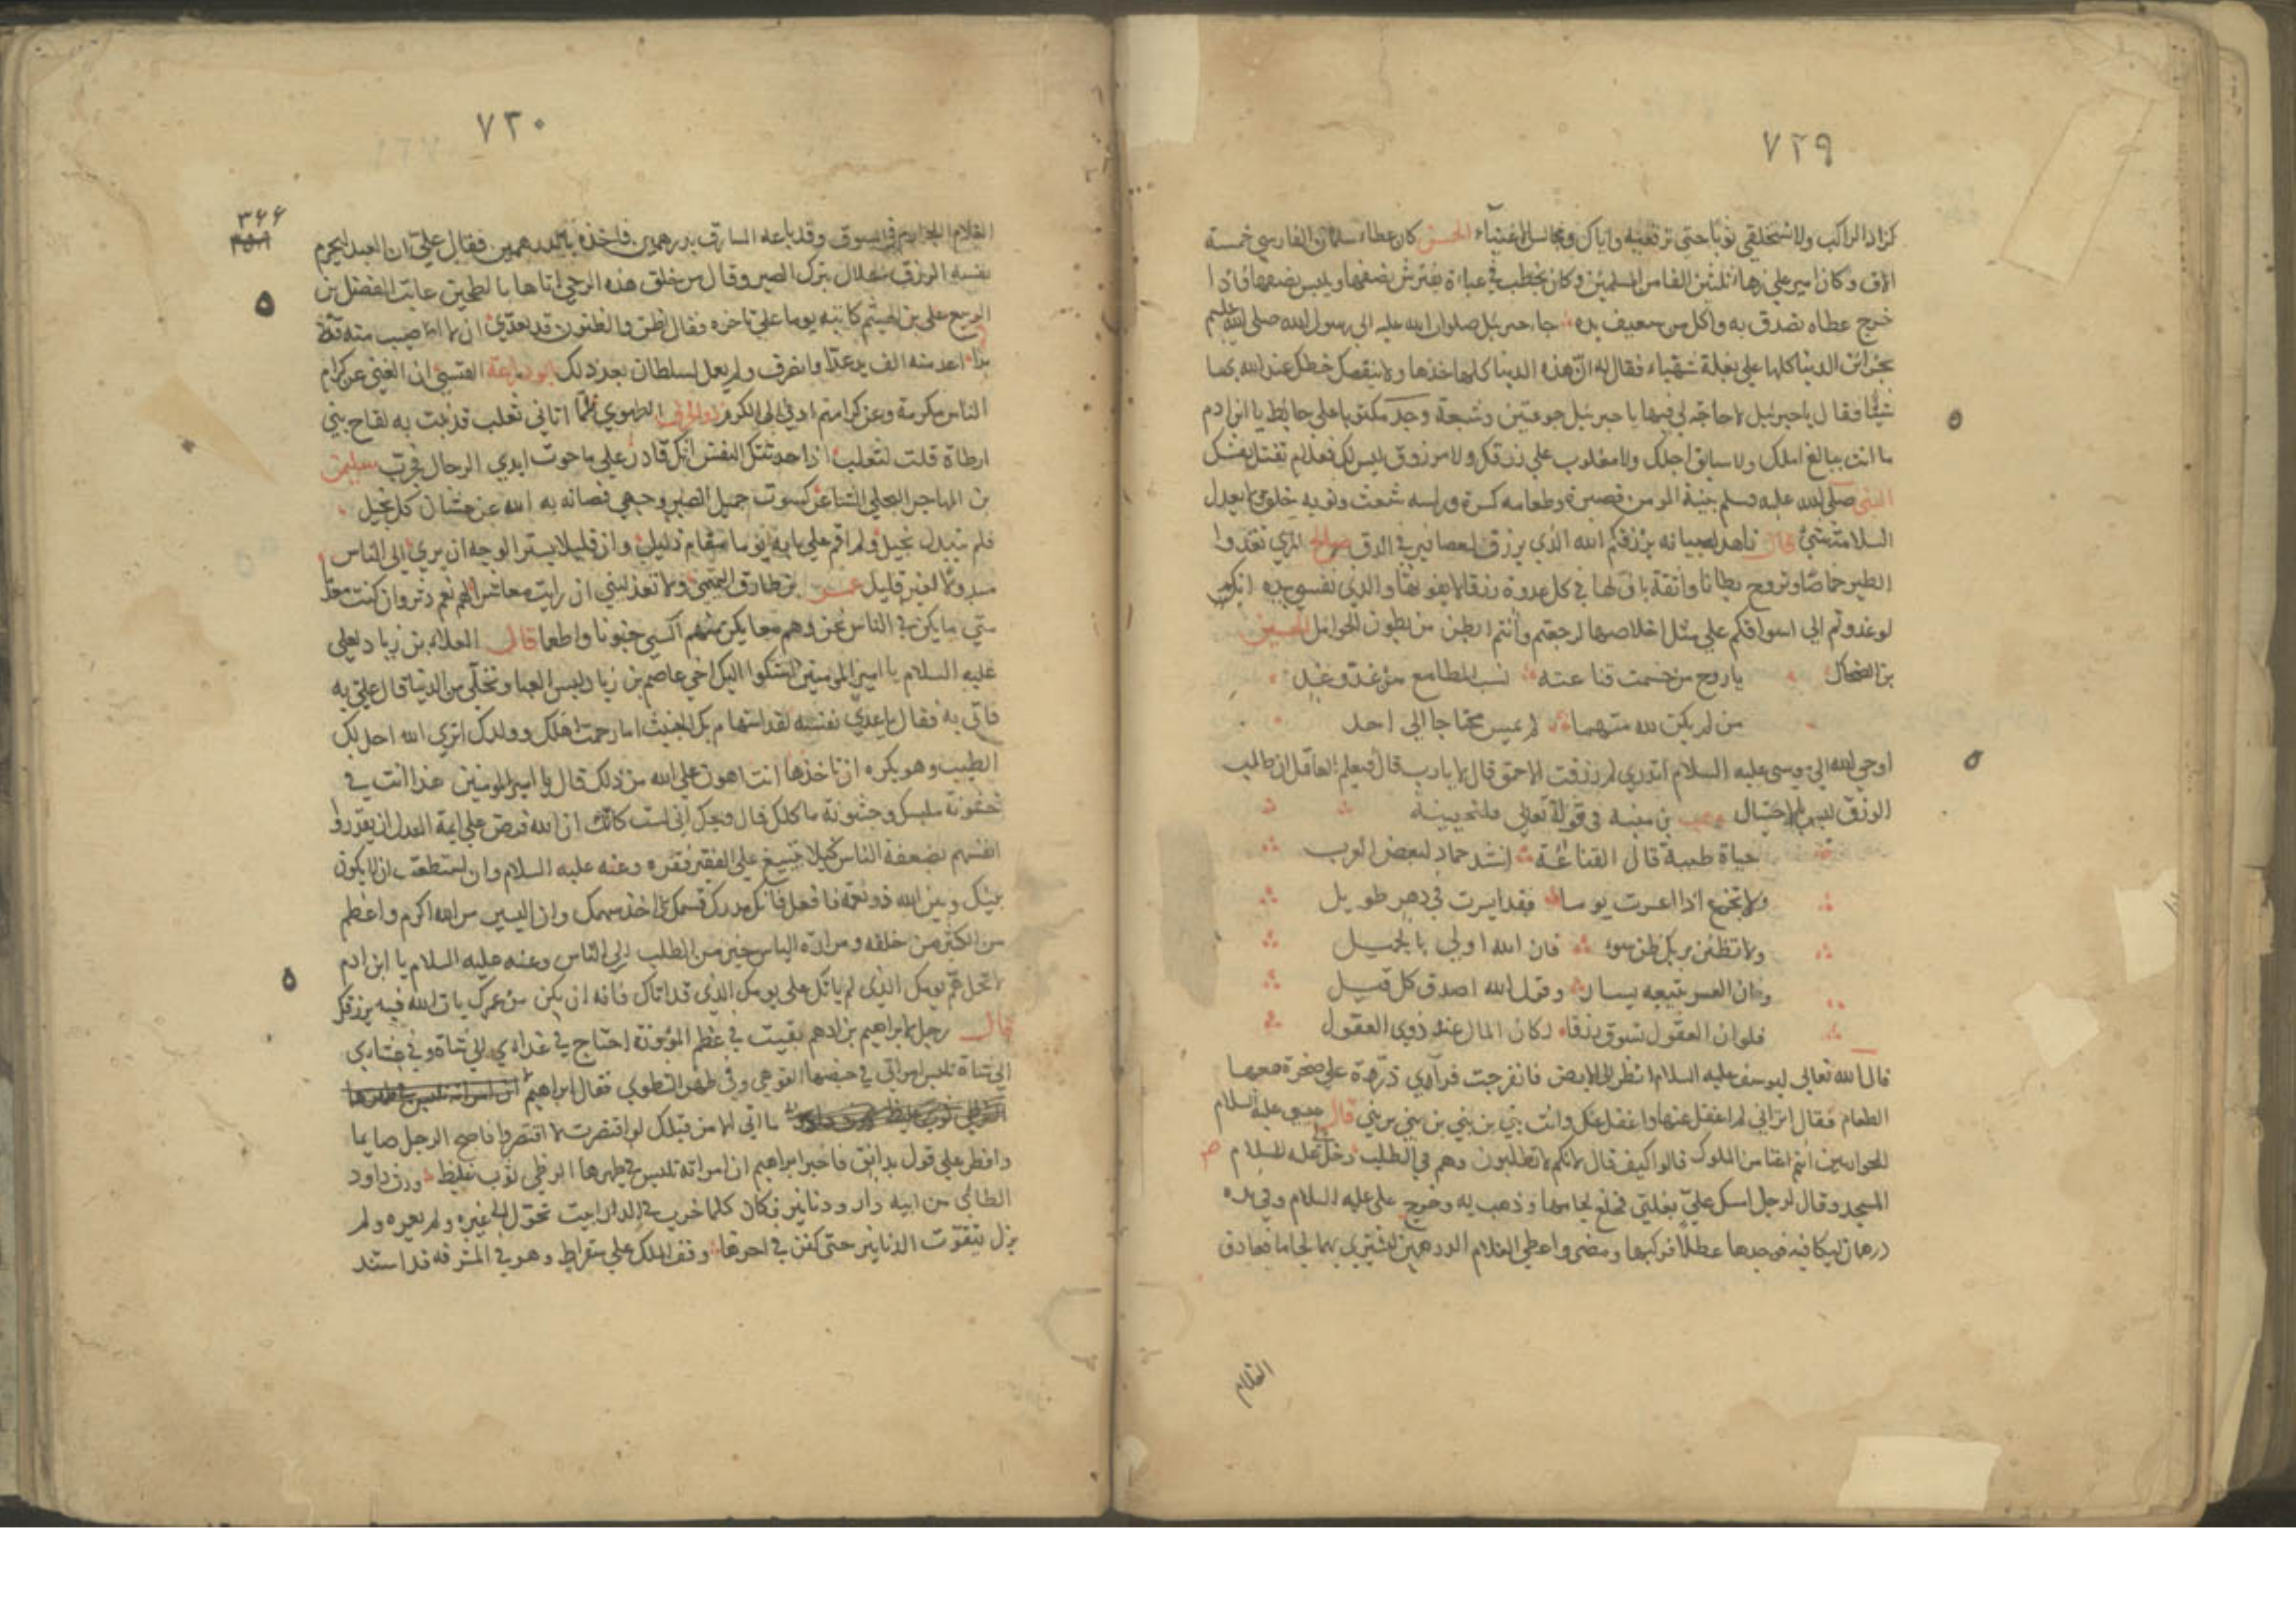 ٧٢٩
كزاد الراكب ولا تستخلقي ثوبا حتى ترقعيه واياك ومجالس الاغنياء الحسن كان عطاء سلمان الفارسي خمسة
الاف وكان اميرا على زهاء ثلثين الفا من المسلمين وكان يخطب في عباءة يفترش نصفها ويلبس نصفها فاذا
خرج عطاه تصدق به واكل من سفيف يده جاء جبرئيل صلوات الله عليه الى رسول الله صلى الله عليه وسلم
بخزائن الدنيا كلها على بغلة شهباء فقال له ان هذه الدنيا كلها خذها ولا ينقصك حظك عند الله بها
شيئا فقال يا جبرئيل لا حاجة لي فيها يا جبرئيل جوعتين وشبعة وجد مكتوبا على حائط يا ابن ادم
ما انت ببالغ املك ولا سابق اجلك ولا مغلوب على رزقك ولا مرزوق ما ليس لك فعلام تقتل نفسك
النبي صلى الله عليه وسلم المومن قصبة وطعامه كسرة وراسه شعث وثوبه خلق لا يعدل
السلامة شئ قال ناهد لصبيانه يرزقكم الله الذي يرزق العصافير في الدو صالح المري تغدوا
الطير خماصا وتروح بطانا واثقة بان لها في كل غدوة رزقا لا يفوتها والذي نفسي بيده انكم
لو غدوتم الى اسواقكم على مثل اخلاصها لرجعتم وانتم ابطن من بطون الحوامل الحسين
بن الضحاك يا روح من حسمت قناعته سبب المطامع من غد وغد
من لم يكن لله متهما لم يمس محتاجا الى احد
اوحى الله الى موسى عليه السلام اتدري لم رزقت الاحمق قال لا يا رب قال ليعلم العاقل ان طالب
الرزق ليس بالاحتيال وهب بن منبه في قوله تعالى فلنحيينه
حياة طيبة قال القناعة انشد حماد لبعض العرب
ولا تجزع اذا اعسرت يوما فقد ايسرت في دهر طويل
ولا تظنن بربك ظن سوء فان الله اولى بالجميل
وان العسر يتبعه يسار وقول الله اصدق كل قيل
فلو ان العقول تسوق رزقا لكان المال عند ذوي العقول
قال الله تعالى ليوسف عليه السلام انظر الى الارض فانفرجت فرآى ذرة على صخرة معها
الطعام فقال اتراني لم اغفل عنها واغفل عنك وانت نبي بن نبي بن نبي بن نبي قال عيسى عليه السلام
للحواريين انتم اغنا من الملوك قالوا كيف قال لانكم لا تطلبون وهم في الطلب دخل علي عليه السلام
المسجد وقال لرجل امسك علي بغلتي فخلع لجامها وذهب به وخرج علي عليه السلام وفي يده
درهمان ليكافيه فوجدها عطلا فركبها ومضى واعطى الغلام الدرهمين ليشتري بهما لجاما فصادف
الغلام
٧٣٠
٣٦٦
الغلام اللجام في السوق وقد باعه السارق بدرهمين فاخذه بالدرهمين فقال علي ان العبد ليحرم
نفسه الرزق الحلال بترك الصبر وقال من خلق هذه الرحى اتاها بالطحين عاتب الفضل بن
الربيع علي بن الهيثم كاتبه يوما على تاخره فقال
بدا
الناس مكرمة وعن كرامتهم ادنى الى الكرم الطهوي لما اتاني ثعلب قذفت به لقاح بني
ارطاة قلت لثعلب على ما حوت ايدي الرجال فجرب سليمان
بن المهاجر البجلي كسوت جميل الصبر وجهي فصانه به الله عن غشيان كل بخيل
فلم يتبدل بخيل ولم اقم على بابه يوما مقام ذليل وان قليلا يستر الوجه ان يرى الى الناس
مبذولا لغير قليل بن طارق التميمي ولا تعذليني ان رايت معاشرا لهم نعم دثر وان كنت مقلا
متى ما يكن في الناس نحن وهم معا يكن منهم اكسى جنوبا واطعما قال العلاء بن زياد لعلي
عليه السلام يا امير المومنين اشكوا اليك اخي عاصم بن زياد لبس العبا وتخلى من الدنيا قال علي به
فاتي به فقال يا عدي نفسه لقد استهام بك الخبيث اما رحمت اهلك وولدك اترى الله احل لك
الطيب وهو يكره ان تاخذها انت اهون على الله من ذلك قال يا امير المومنين هذا انت في
خشونة ملبسك وجشوبة ماكلك قال ويحك اني لست كانت ان الله فرض على ايمة العدل ان يقدروا
انفسهم بضعفة الناس كيلا يتبيغ على الفقير فقره وعنه عليه السلام وان استطعت ان لا يكون
بينك وبين الله ذو نعمة فافعل فانك مدرك قسمك واخذ سهمك وان اليسير من الله اكرم واعظم
من الكثير من خلقه ومرارة الياس خير من الطلب الى الناس وعنه عليه السلام يا ابن ادم
لا تحمل هم يومك الذي لم ياتك على يومك الذي قد اتاك فانه ان يكن من عمرك يات الله فيه برزقك
قال رجل لابراهيم بن ادهم بقيت في عظم المؤونة احتاج في غداءي الى شاة وفي عشاءي
الى شاة تلبس امراتي في حيضها القوهي وفي طهر القطوي فقال ابراهيم
ما اتي الا من قبلك لو اقتصرت لاقتصروا فاصبح الرجل صايما
وافطر على قول بدانق فاخبر ابراهيم ان امراته تلبس في طهرها القرظي ثوب غليظ ورث داود
الطائي من ابيه دار ودنانير فكان كلما خرب في الدار بيت تحول الى غيره ولم يعمره ولم
يزل يتقوت الدنانير حتى كفن في اخرها وقف الملك على سقراط وهو في المشرفة قد استند